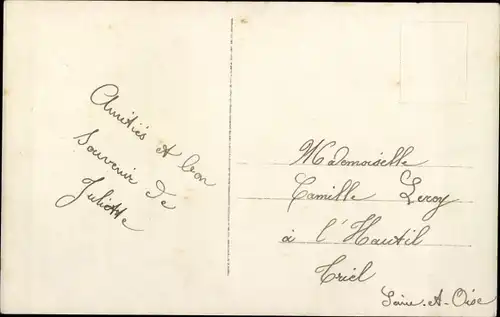 Amitiés et bon
souvenir de
Juliette
Mademoiselle
Camille Leroy
à l'Hautil
Triel
Seine-et-Oise